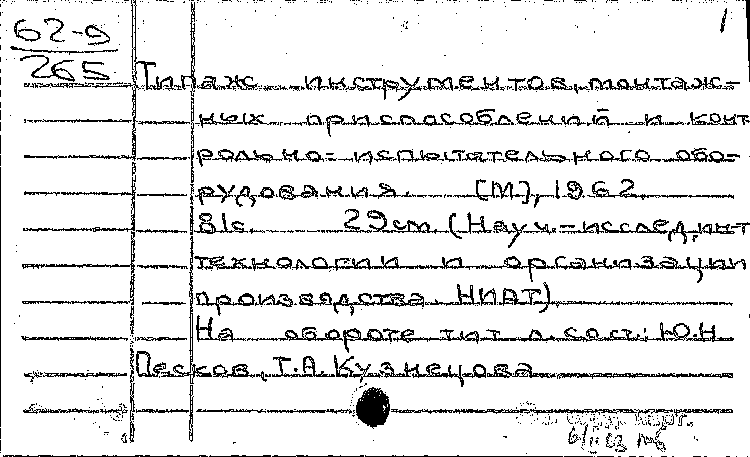 1
62-9
265
Типаж инструментов, монтаж-
ных приспособлений и конт
рольно-испытательного обо-
рудования. [М], 1962.
81с. 29см. (Науч.-исслед. инт
технологии и организации
производства. НИАТ).
На обороте тит л. сост.: Ю.Н
Песков, Т.А. Кузнецова